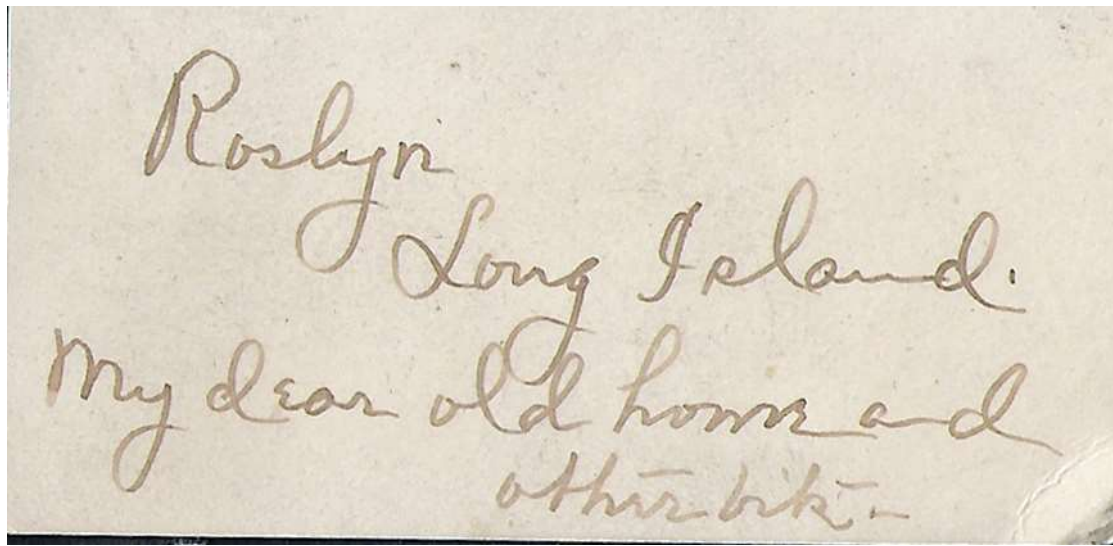 Roslyn
Long Island.
My dear old home and
other bits -